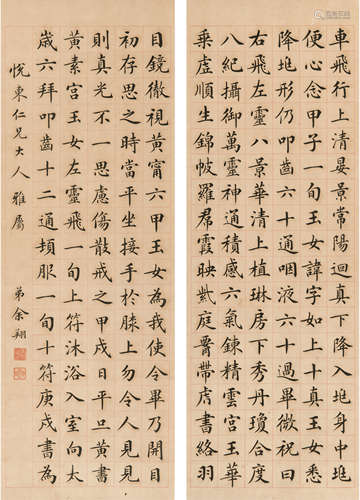 車飛行上清晏景常陽回真下降入兆身中兆
便心念甲子一旬玉女諱字如上十真玉女悉
降兆形仍叩齒六十通咽液六十過畢微祝曰
右飛左靈八景華清上植琳房下秀丹瓊合度
八紀攝御萬靈神通積感六氣鍊精雲宮玉華
乘虛順生錦帔羅帬霞映紫庭腎帶虎書絡羽
目鏡徹視黃寧六甲玉女為我使令畢乃開目
初存思之時當平坐接手於膝上勿令人見見
則真光不一思慮傷散戒之甲戌日平旦黃書
黃素宮玉女左靈飛一旬上符沐浴入室向太
歲六拜叩齒十二通頓服一旬十符庚戌書為
悅東仁兄大人雅屬
弟余翔